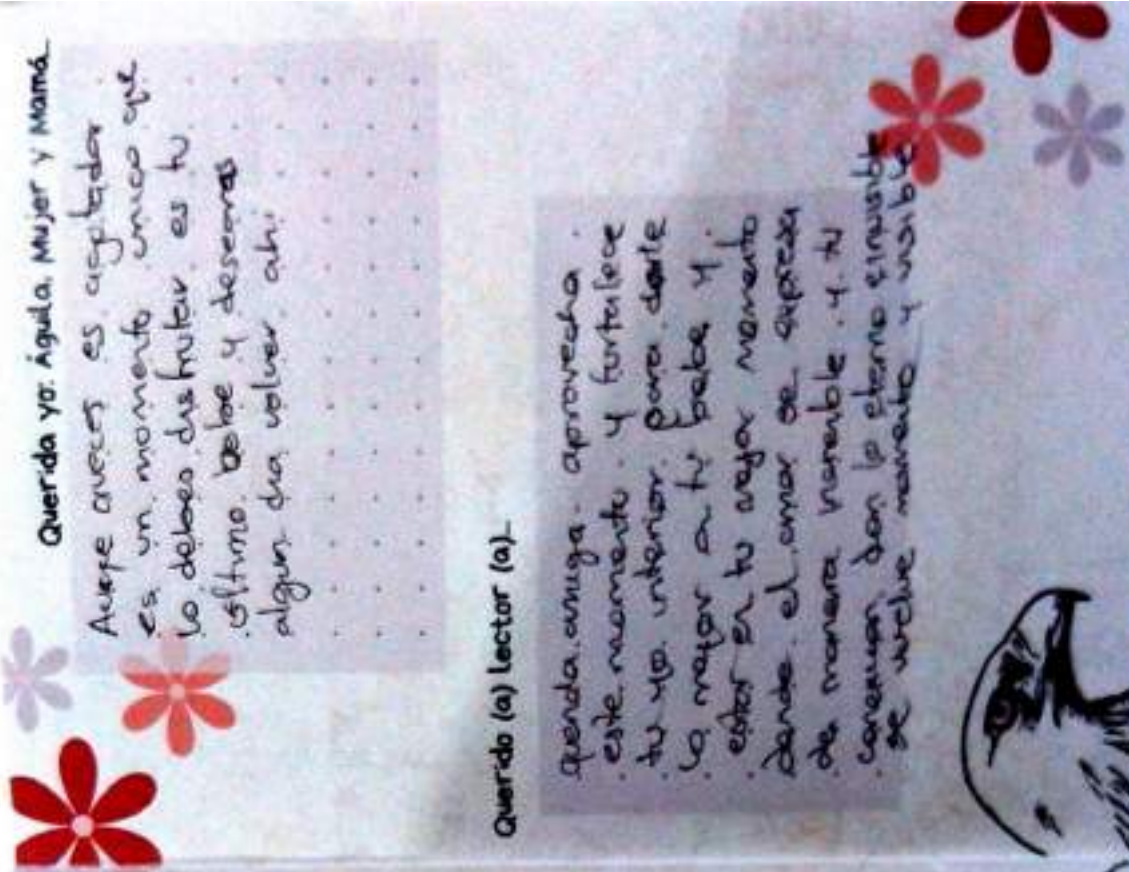 Querida yo: Águila, Mujer y Mamá
Aunque aveces es agotador
es un momento unico que
lo debes disfrutar es tu
ultimo bebe y desearas
algun dia volver ahi
Querido (a) Lector (a)
querida amiga aprovecha
este momento y fortalece
tu yo interior para darle
lo mejor a tu bebe y
estar en tu mejor momento
donde el amor se expresa
de manera inmensa y tu
conexion con lo eterno e invisible
se vuelve momento y visible